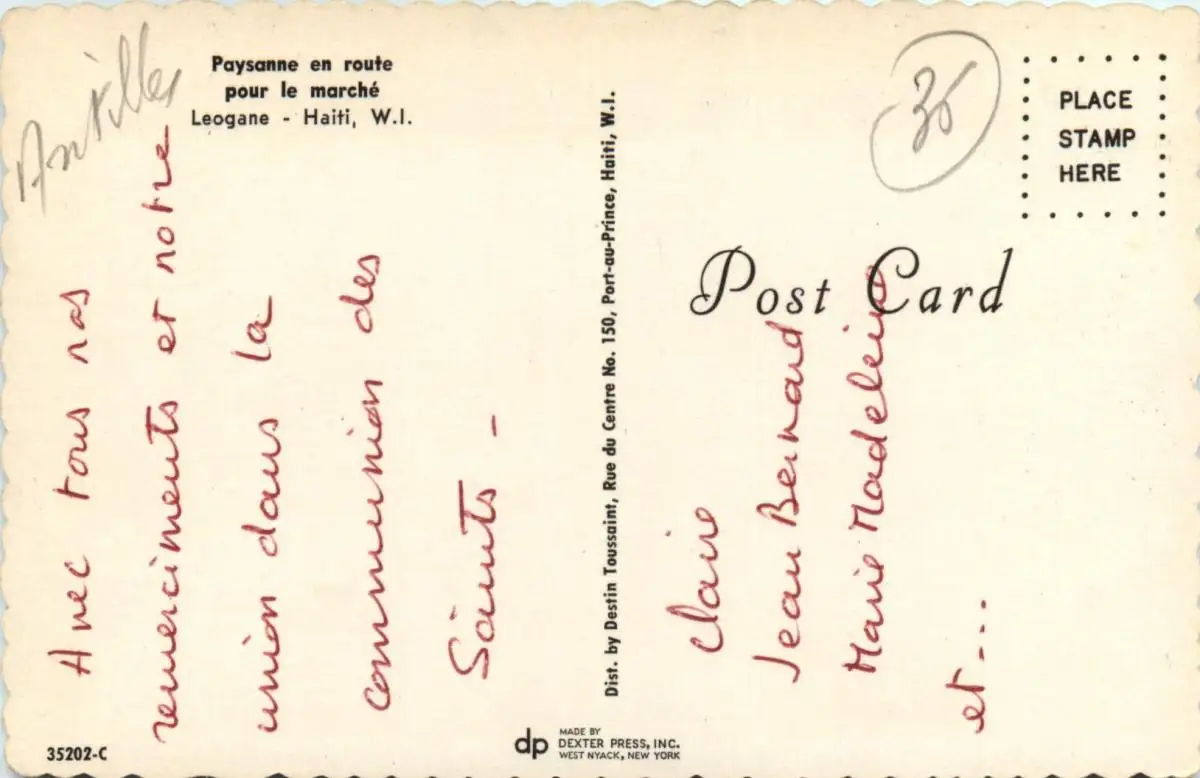 Antilles
Paysanne en route
pour le marché
Leogane - Haiti, W.I.
Avec tous nos
remerciments et notre
union dans la
communion des
Saints -
35202-C
Dist. by Destin Toussaint, Rue du Centre No. 150, Port-au-Prince, Haiti, W.I.
dp
MADE BY
DEXTER PRESS, INC.
WEST NYACK, NEW YORK
PLACE
STAMP
HERE
Post Card
Claire
Jean Bernard
Marie Madeleine
et ...